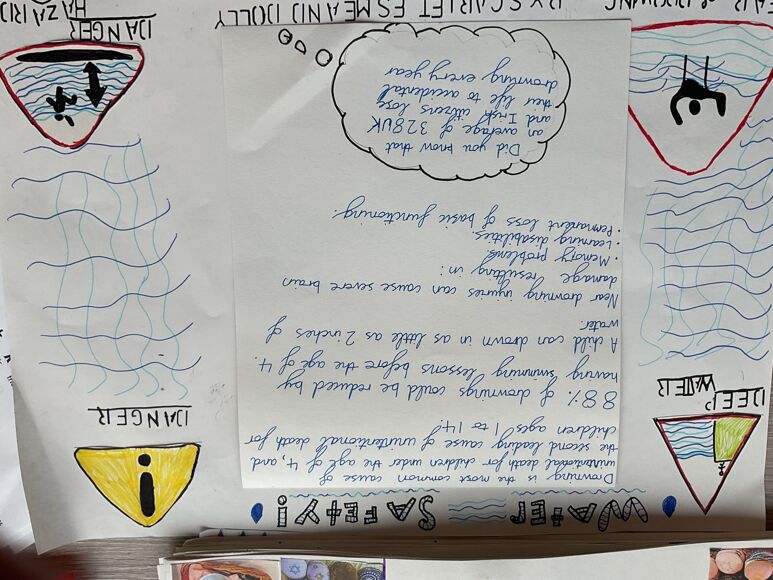 WATER SAFETY!
Drowning is the most common cause of
unintentional death for children under the age of 4, and
the second leading cause of unintentional death for
children ages 1 to 14
88% of drownings could be reduced by
having swimming lessons before the age of 4.
A child can drown in as little as 2 inches of
water
Near drowning injuries can cause severe brain
damage resulting in:
• Memory problems
• Learning disabilities.
• Permanent loss of basic functioning.
Did you know that
an average of 328 UK
and Irish citizens lose
their life to accidental
drowning every year
DEEP
WATER
DANGER
DANGER
HAZARD
BY SCARLET ESME AND DOLLY